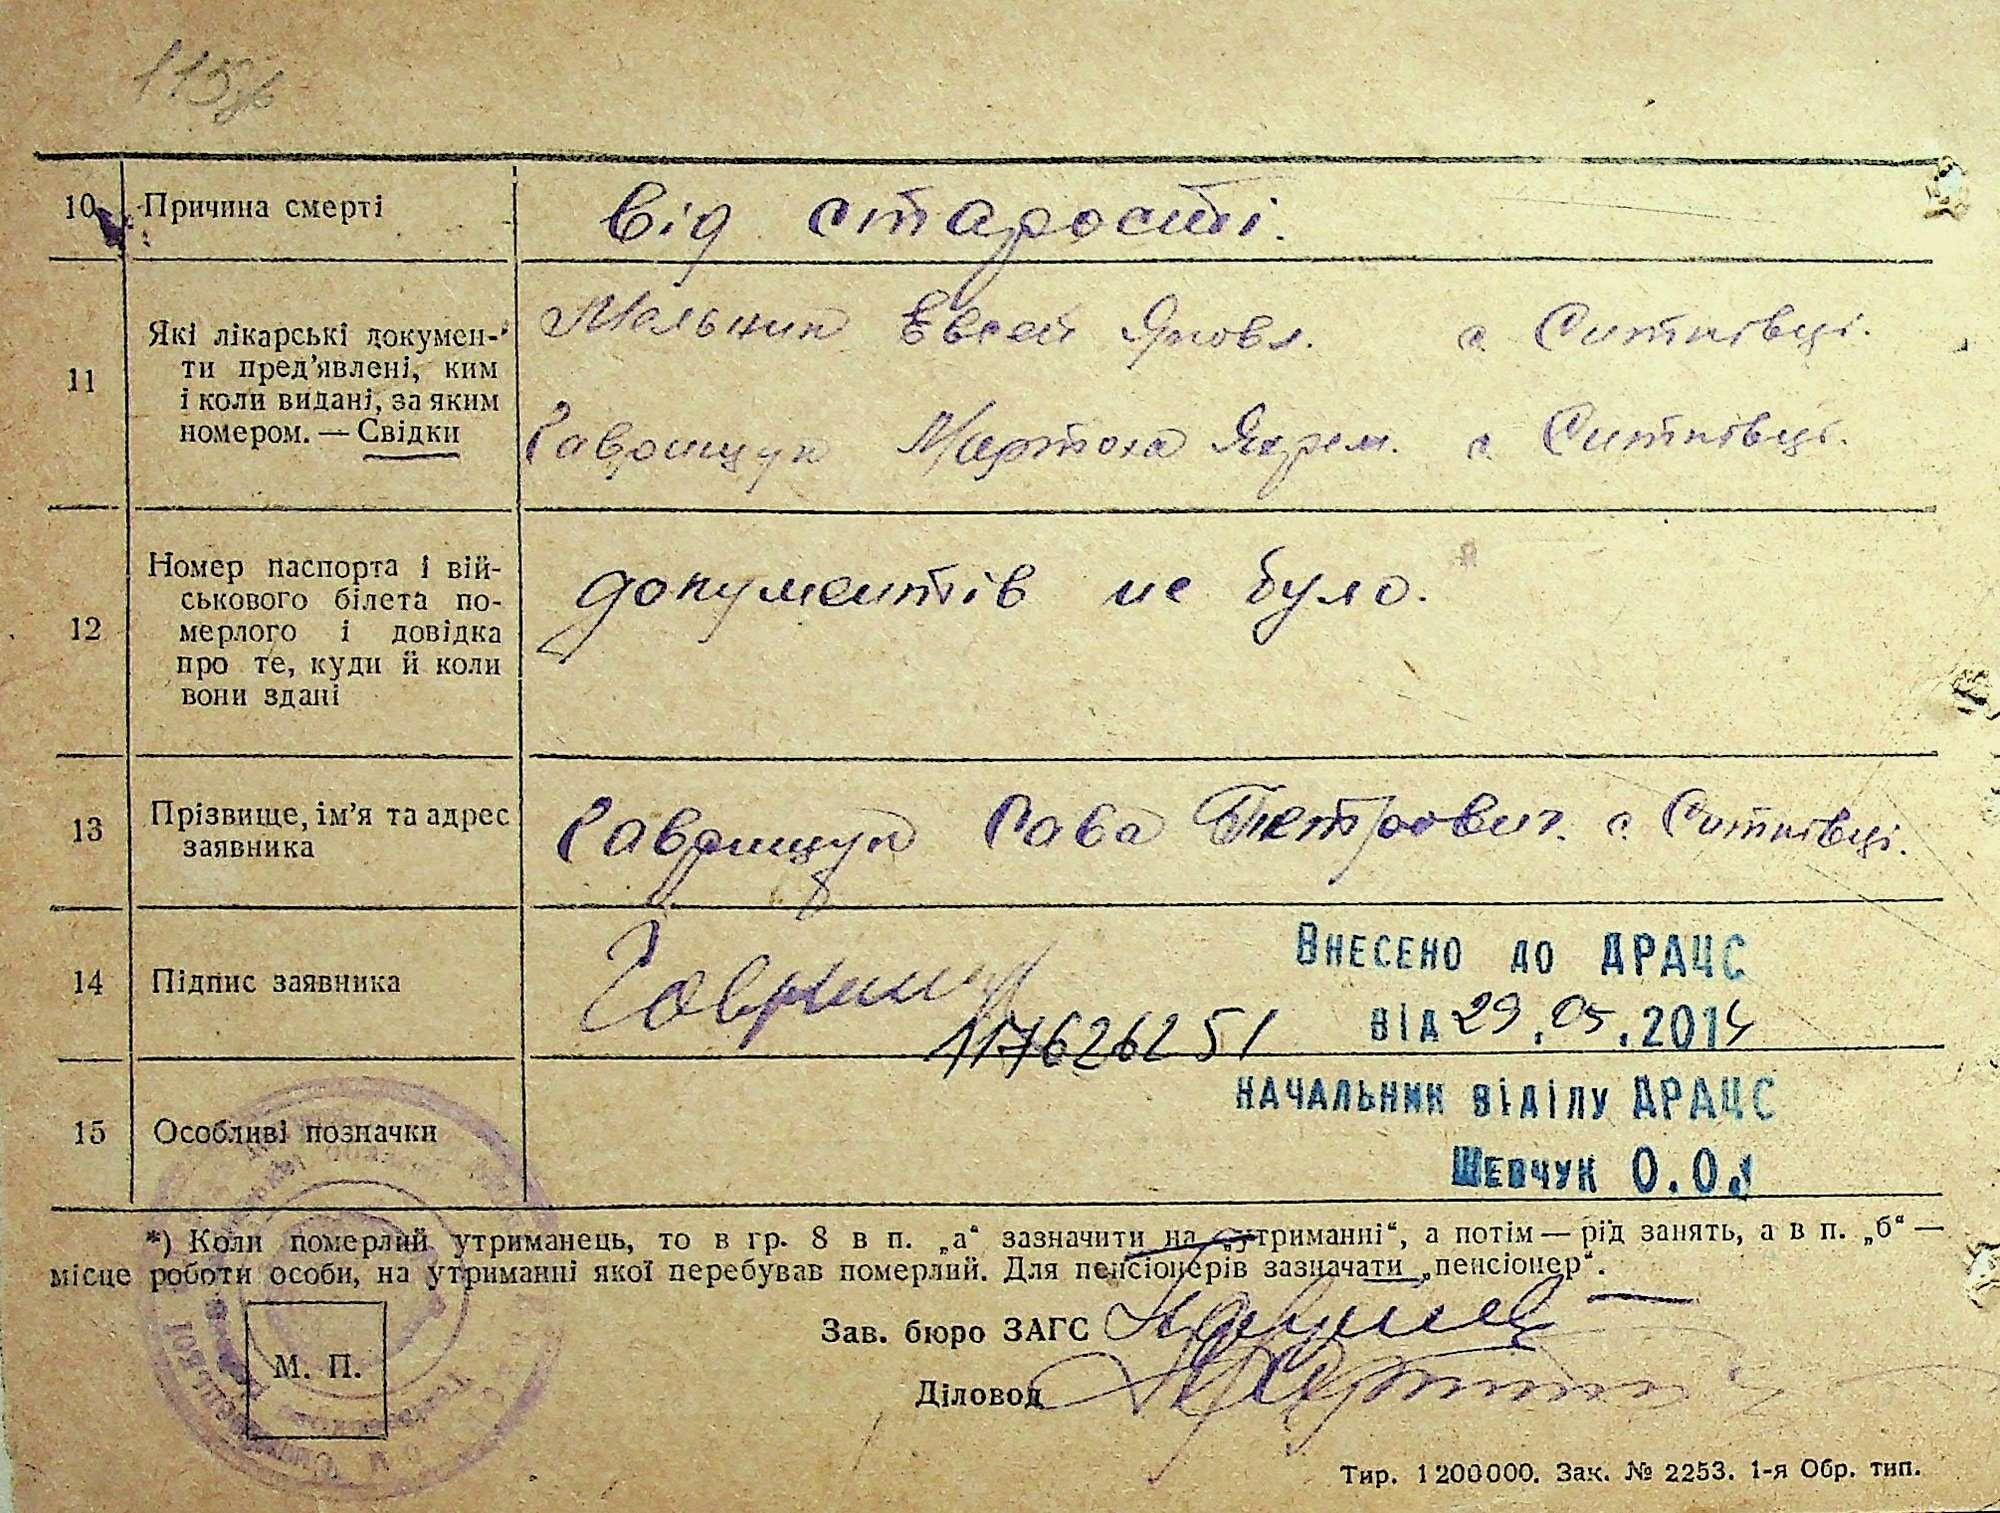 115
10 Причина смерті від старости.
11 Які лікарські докумен-
ти пред'явлені, ким
і коли видані, за яким
номером. — Свідки
Мельник Евсей Яковл. с. Ситківці.
Гаврищук Мартоха Якрем. с. Ситківці.
12 Номер паспорта і вій-
ськового білета по-
мерлого і довідка
про те, куди й коли
вони здані
документів не було.
13 Прізвище, ім'я та адрес
заявника
Гаврищук Сава Петрович. с. Ситківці.
14 Підпис заявника
Гаврищук
Внесено до ДРАЦС
від 29.05.2014
117626251
15 Особливі позначки
начальник відділу ДРАЦС
Шевчук О.О.
*) Коли померлий утриманець, то в гр. 8 в п. „а“ зазначити на „утриманні“, а потім — рід занять, а в п. „б“ —
місце роботи особи, на утриманні якої перебував померлий. Для пенсіонерів зазначати „пенсіонер“.
М. П.
Зав. бюро ЗАГС
Діловод
Тир. 1200000. Зак. № 2253. 1-я Обр. тип.